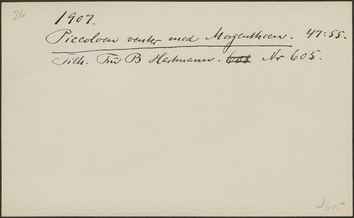 1907.
Piccoloen venter med Morgentheen. 47:55.
Tilh. Fru B Hartmann. 601 Nr 605.